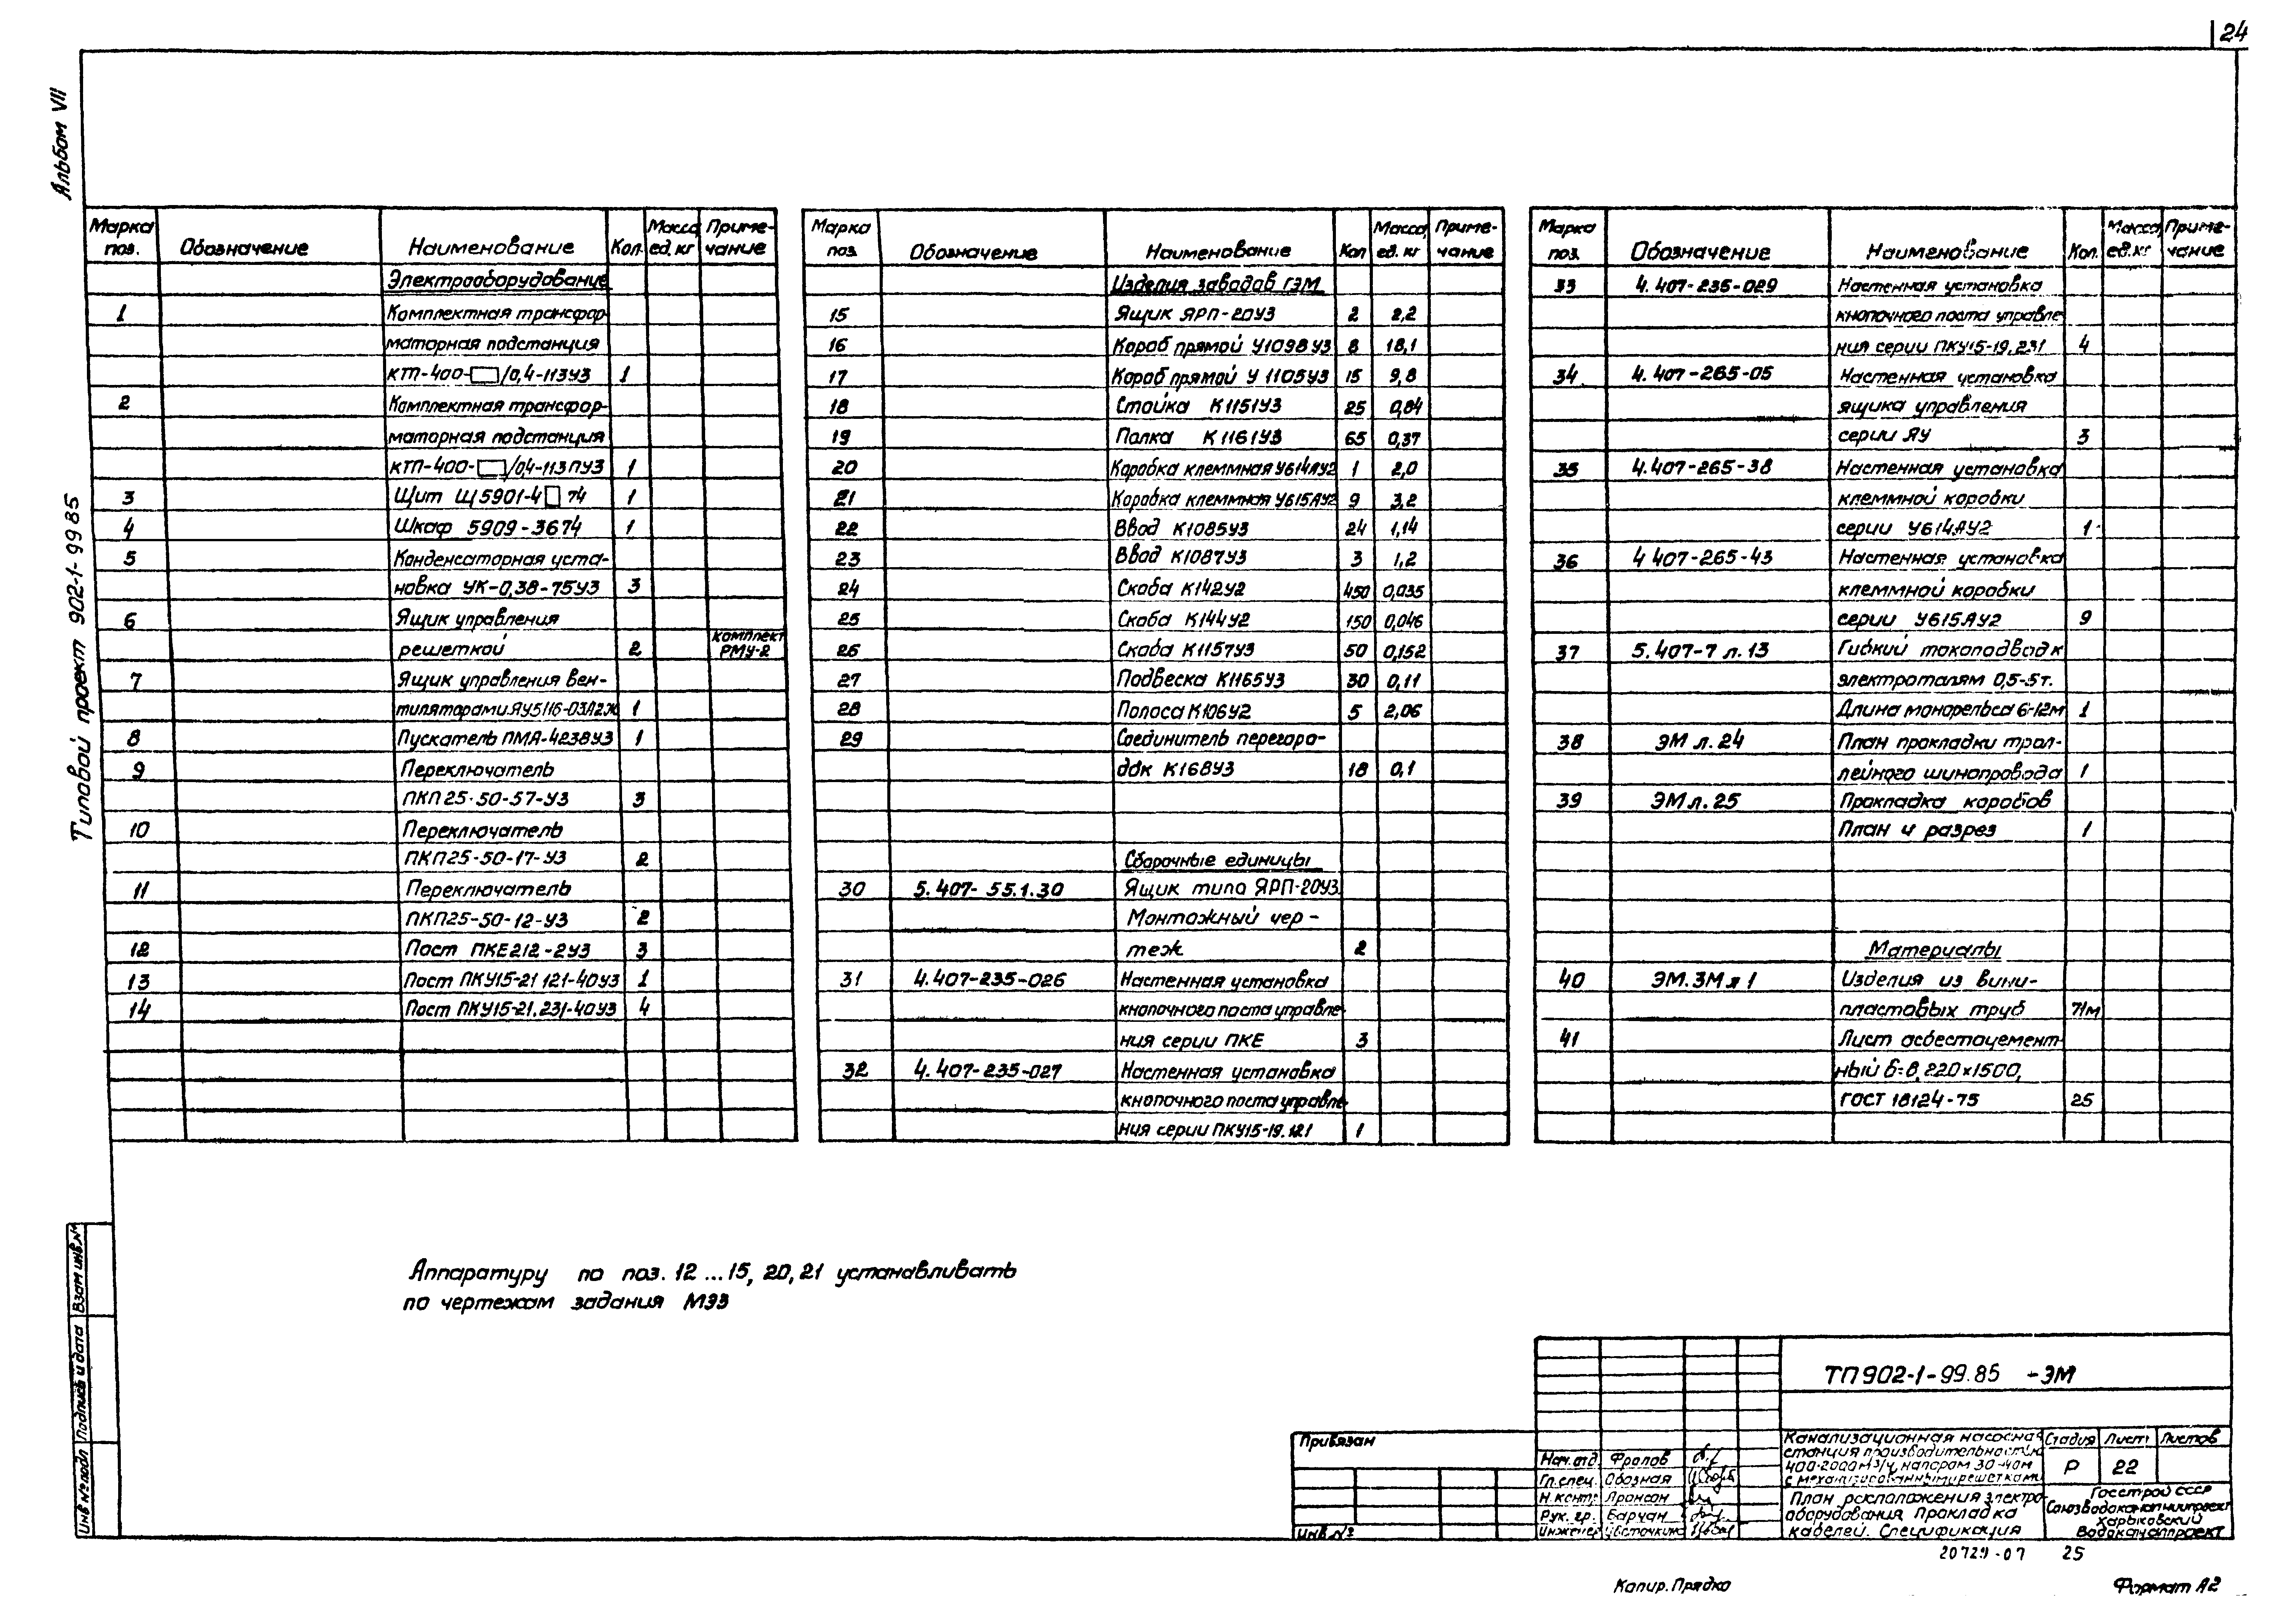 24
Альбом VII
Типовой проект 902-1-99 85
Марка поз. Обозначение Наименование Кол. Масса ед. кг Примечание
Электрооборудование
1 Комплектная трансфор-
маторная подстанция
КТП-400-□/0,4-113У3 1
2 Комплектная трансфор-
маторная подстанция
КТП-400-□/0,4-113ПУ3 1
3 Щит Щ5901-4□74 1
4 Шкаф 5909-3674 1
5 Конденсаторная уста-
новка УК-0,38-75У3 3
6 Ящик управления
решеткой 2 комплект РМУ-2
7 Ящик управления вен-
тиляторами ЯУ5116-03А2Ж 1
8 Пускатель ПМА-4238У3 1
9 Переключатель
ПКП25-50-57-У3 3
10 Переключатель
ПКП25-50-17-У3 2
11 Переключатель
ПКП25-50-12-У3 2
12 Пост ПКЕ212-2У3 3
13 Пост ПКУ15-21 121-40У3 1
14 Пост ПКУ15-21.231-40У3 4
Марка поз. Обозначение Наименование Кол Масса ед. кг Примечание
Изделия заводов ГЭМ
15 Ящик ЯРП-20У3 2 2,2
16 Короб прямой У1098У3 8 18,1
17 Короб прямой У1105У3 15 9,8
18 Стойка К1151У3 25 0,84
19 Полка К1161У3 65 0,37
20 Коробка клеммная У614АУ2 1 2,0
21 Коробка клеммная У615АУ2 9 3,2
22 Ввод К1085У3 24 1,14
23 Ввод К1087У3 3 1,2
24 Скоба К142У2 450 0,035
25 Скоба К144У2 150 0,046
26 Скоба К1157У3 50 0,152
27 Подвеска К1165У3 30 0,11
28 Полоса К106У2 5 2,06
29 Соединитель перегоро-
док К168У3 18 0,1
Сборочные единицы
30 5.407-55.1.30 Ящик типа ЯРП-20У3.
Монтажный чер-
теж 2
31 4.407-235-026 Настенная установка
кнопочного поста управле-
ния серии ПКЕ 3
32 4.407-235-027 Настенная установка
кнопочного поста управле-
ния серии ПКУ15-19.121 1
Марка поз. Обозначение Наименование Кол. Масса ед. кг Примечание
33 4.407-235-029 Настенная установка
кнопочного поста управле
ния серии ПКУ15-19.231 4
34 4.407-265-05 Настенная установка
ящика управления
серии ЯУ 3
35 4.407-265-38 Настенная установка
клеммной коробки
серии У614АУ2 1
36 4 407-265-43 Настенная установка
клеммной коробки
серии У615АУ2 9
37 5.407-7 л.13 Гибкий токоподвод к
электроталям 0,5-5т.
Длина монорельса 6-12м 1
38 ЭМ л.24 План прокладки трол-
лейного шинопровода 1
39 ЭМ л.25 Прокладка коробов
План и разрез 1
Материалы
40 ЭМ.ЗМ л 1 Изделия из вини-
пластовых труб 71м
41 Лист асбестоцемент-
ный б=8, 220×1500,
ГОСТ 18124-75 25
Аппаратуру по поз. 12...15, 20, 21 устанавливать
по чертежам задания МЭЗ
Инв № подл Подпись и дата Взам инв.№
ТП902-1-99.85 -ЭМ
Привязан
Инв №
Нач. отд. Фролов
Гл. спец. Обозная
Н. контр. Аронсон
Рук. гр. Барчан
Инженер Цветочкина
Канализационная насосная
станция производительностью
400-2000м³/ч, напором 30-40м
с механизированными решетками
Стадия Лист Листов
Р 22
План расположения электро-
оборудования Прокладка
кабелей. Спецификация
Госстрой СССР
Союзводоканалниипроект
Харьковский
Водоканалпроект
20729-07 25
Копир. Прядко
Формат А2